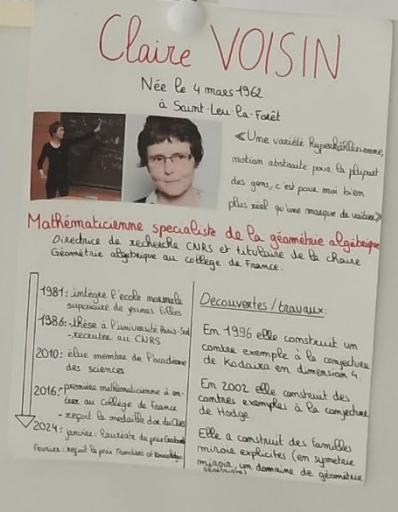 Claire VOISIN
Née le 4 mars 1962
à Saint-Leu-la-Forêt
«Une variété hyperkählérienne,
notion abstraite pour la plupart
des gens, c'est pour moi bien
plus réel qu'une marque de voiture»
Mathématicienne specialiste de la géométrie algébrique
Directrice de recherche CNRS et titulaire de la chaire
Géométrie algébrique au collège de France.
1981: intègre l'école normale
supérieure de jeunes filles
1986: thèse à l'université Paris-Sud
-recrutée au CNRS
2010: élue membre de l'académie
des sciences
2016: -première mathématicienne à en-
trer au Collège de France
- reçoit la médaille d'or du CNRS
2024: janvier: lauréate du prix
Fevrier: reçoit le prix et
Decouvertes / travaux:
En 1996 elle construit un
contre exemple à la conjecture
de Kodaira en dimension 4
En 2002 elle construit des
contres exemples à la conjecture
de Hodge.
Elle a construit des familles
miroir explicites (en symetrie
miroir, un domaine de géométrie